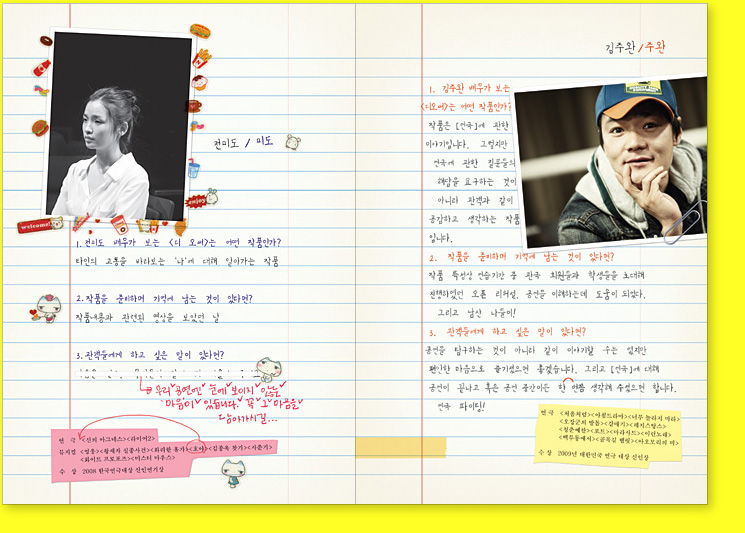 전미도 / 미도
welcome!
enjoy
1. 전미도 배우가 보는 <디 오써>는 어떤 작품인가?
타인의 고통을 바라보는 '나'에 대해 알아가는 작품
2. 작품을 준비하며 기억에 남는 것이 있다면?
작품내용과 관련된 영상을 보았던 날
3. 관객들에게 하고 싶은 말이 있다면?
우리 공연엔 눈에 보이지 않는
마음이 있습니다. 꼭 그 마음을
담아가시길...
연 극 <신의 아그네스><라이어2>
뮤지컬 <영웅><황제차 실종사건><화려한 휴가><호야><김종욱 찾기><사춘기>
<화이트 프로포즈><미스터 마우스>
수 상 2008 한국연극대상 신인연기상
김주완 / 주완
1. 김주완 배우가 보는
<디오써>는 어떤 작품인가?
작품은 [연극]에 관한
이야기입니다. 그렇지만
연극에 관한 질문들의
해답을 요구하는 것이
아니라 관객과 같이
공감하고 생각하는 작품
입니다.
2. 작품을 준비하며 기억에 남는 것이 있다면?
작품 특성상 연습기간 중 관극 회원들과 학생들을 초대해
진행하였던 오픈 리허설, 공연을 이해하는데 도움이 되었다.
그리고 남산 나들이!
3. 관객들에게 하고 싶은 말이 있다면?
공연을 탐구하는 것이 아니라 같이 이야기할 수는 없지만
편안한 마음으로 즐기셨으면 좋겠습니다. 그리고 [연극]에 대해
공연이 끝나고 혹은 공연 중간이든 한 번쯤 생각해 주셨으면 합니다.
연극 파이팅!
연 극 <처음처럼><아침드라마><너무 놀라지 마라>
<오장군의 발톱><갈매기><레지스탕스>
<청춘예찬><보트><마라사드><이런노래>
<백무동에서><골목길 햄릿><아오모리의 비>
수 상 2009년 대한민국 연극 대상 신인상